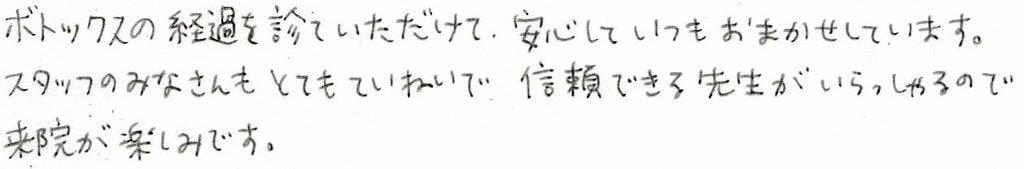 ボトックスの経過を診ていただけて、安心していつもおまかせしています。
スタッフのみなさんもとてもていねいで 信頼できる先生がいらっしゃるので
来院が楽しみです。